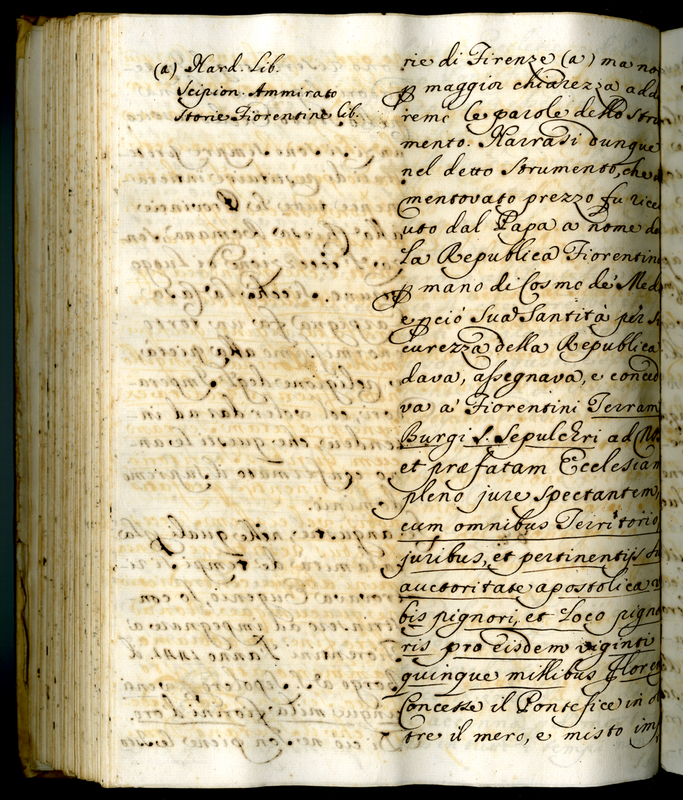 (a) Nard. Lib.
Scipion. Ammirato
Storie Fiorentine lib.
rie di Firenze (a) ma no
ꝑ maggior chiarezza add
remo le parole dello Stru
mento. Narrasi dunque
nel detto Strumento, che
mentovato prezzo fu rice
uto dal Papa a nome de
la Republica Fiorentin
ꝑ mano di Cosmo de' Med
e ꝑciò Sua Santità per si
curezza della Republica
dava, assegnava, e conced
va a' Fiorentini Terram
Burgi S. Sepulchri ad
et præfatam Ecclesiam
pleno jure spectantem,
cum omnibus Territorio
juribus, et pertinentijs
auctoritate apostolica
bis pignori, et loco pigno
ris pro eisdem viginti
quinque millibus Floren
Concesse il Pontefice in ol
tre il mero, e misto im